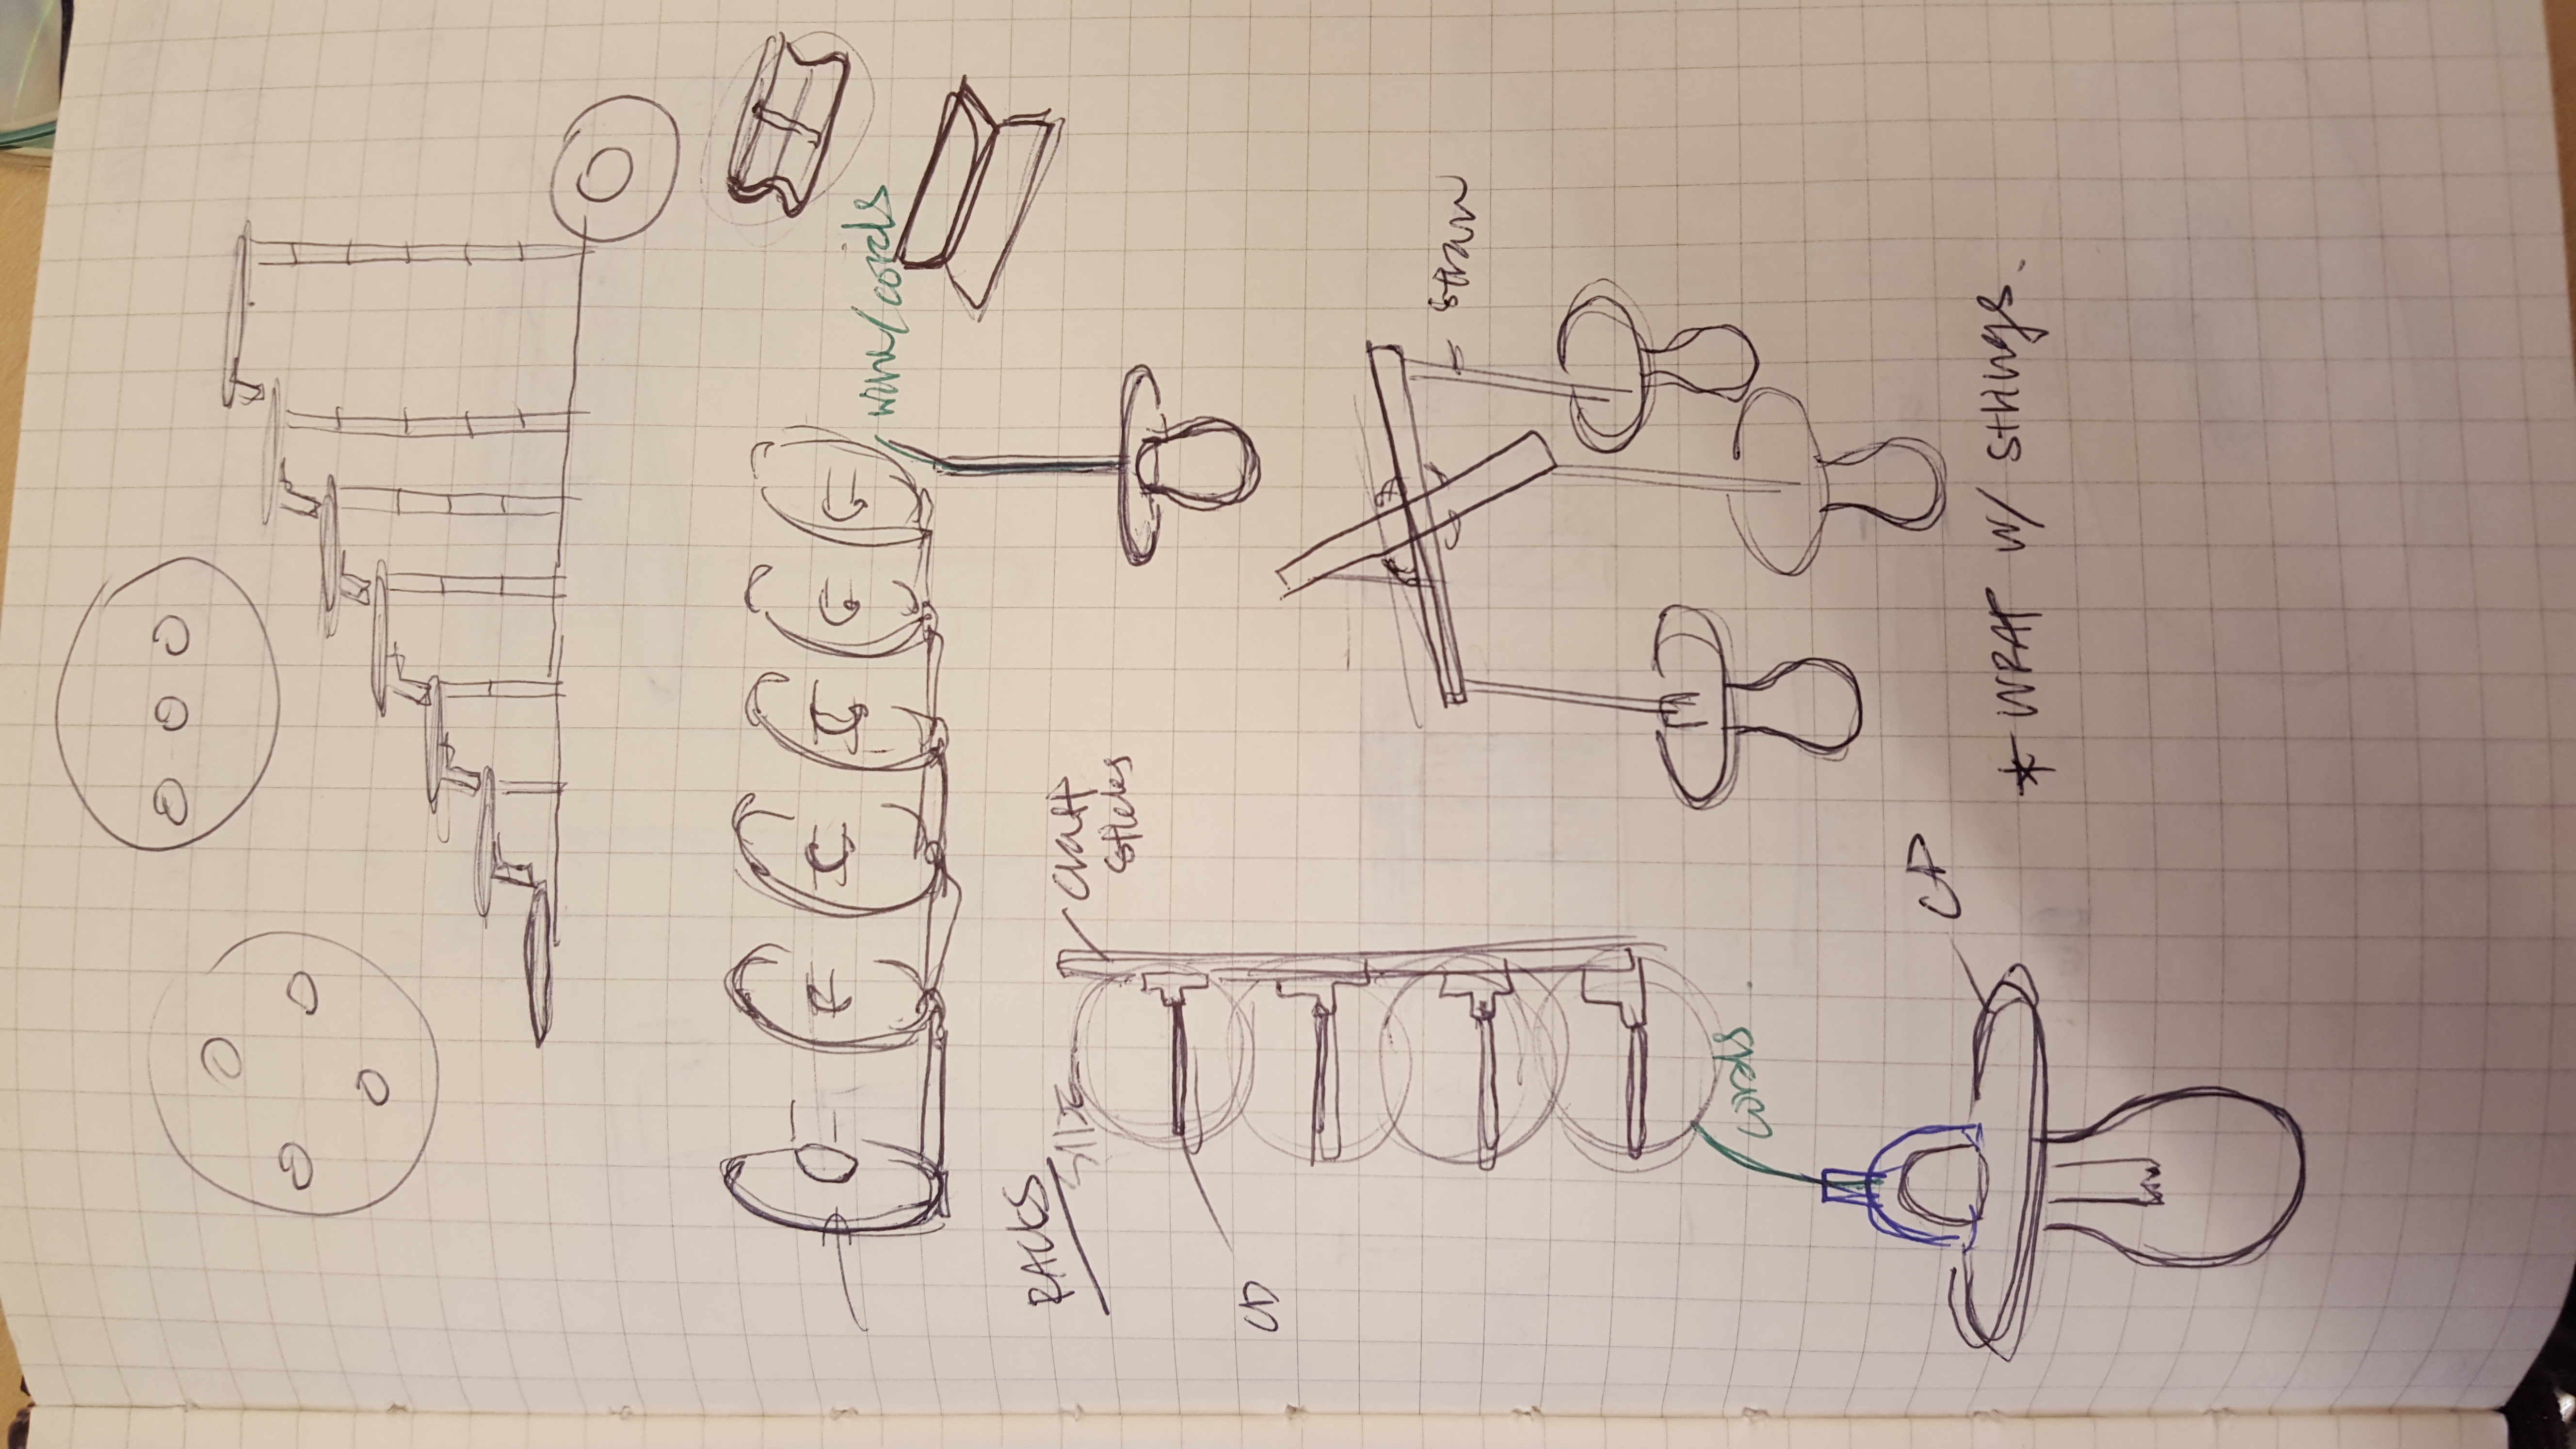 wire/cords
RACKS
SIDE
Craft
Sticks
CD
straw
cords.
CD
* WRAP W/ strings.